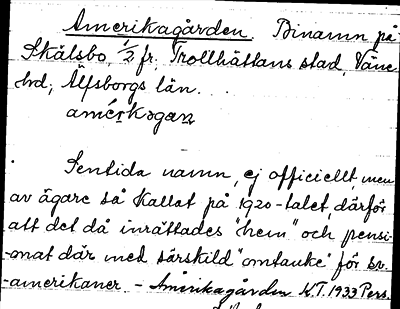 Amerikagården. Binamn på
Skålsbo, 1/2 fr. Trollhättans stad, Väne
hd, Älfsborgs län.
Sentida namn, ej officiellt, men
av ägare så kallat på 1920-talet, därför
att det då inrättades "hem" och pensi-
-onat där med särskild "omtanke" för sv.
-amerikaner. - Amerikagården K.T. 1933 Pers.